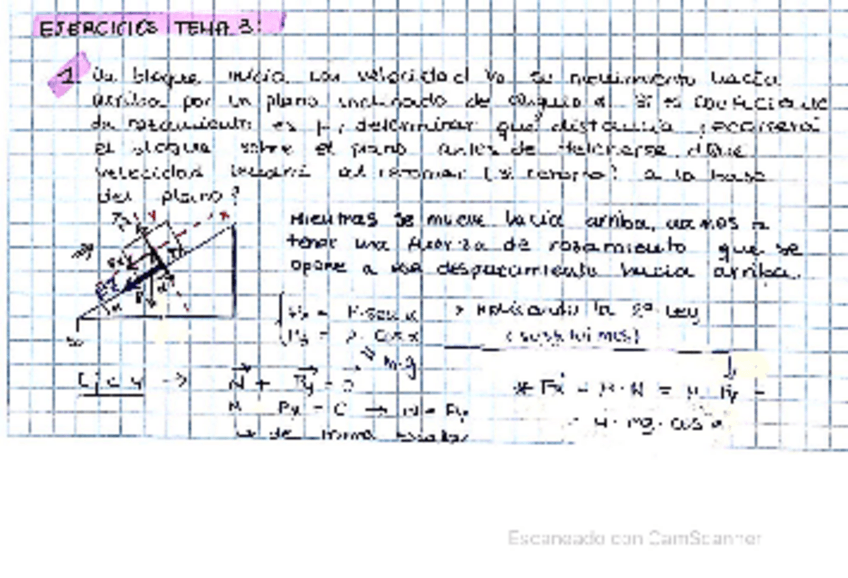 EJERCICIOS TEMA 3:
1 Un bloque inicia con velocidad V0 su movimiento hacia
arriba por un plano inclinado de ángulo α. Si el coeficiente
de rozamiento es μ, determinar qué distancia recorrerá
el bloque sobre el plano antes de detenerse ¿Qué
velocidad tendrá al retornar (si retorna) a la base
del plano?
Mientras se mueve hacia arriba, vamos a
tener una fuerza de rozamiento que se
opone a ese desplazamiento hacia arriba.
Px = P·sen α → Aplicando la 2ª Ley
Py = P·cos α (sustituimos)
m·g
Eje y → N + Py = 0
N - Py = 0 → N = Py
↳ de forma escalar
* FR = μ·N = μ·Py =
= μ·mg·cos α
Escaneado con CamScanner